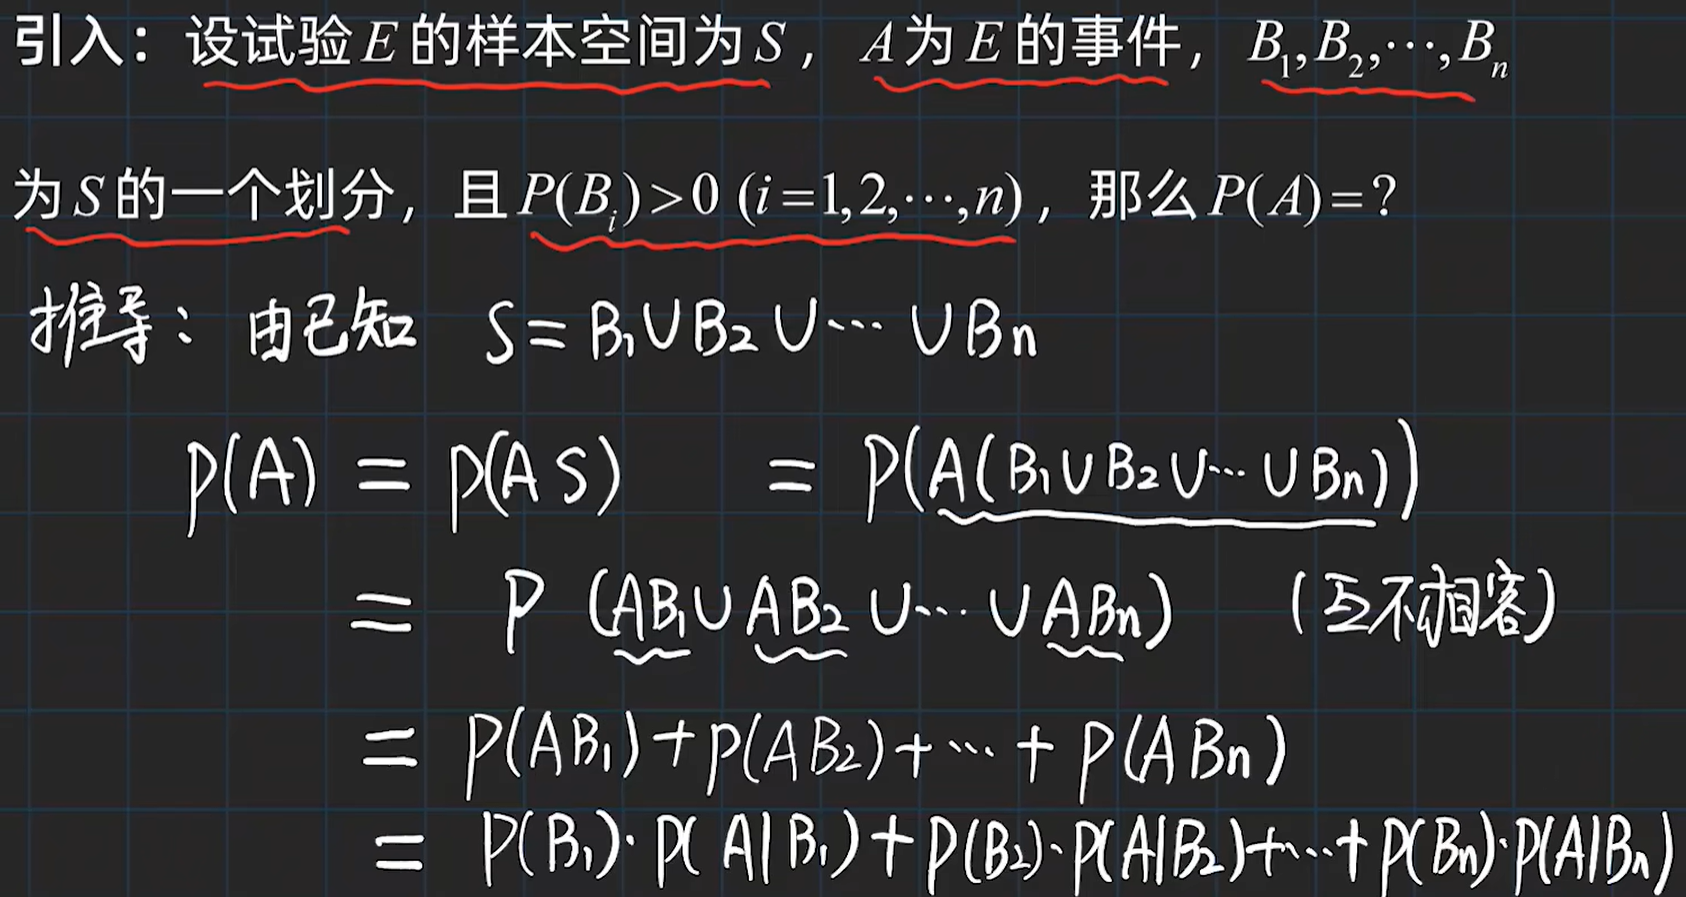 引入：设试验E的样本空间为S，A为E的事件，B₁,B₂,⋯,Bₙ
为S的一个划分，且P(Bᵢ)>0 (i=1,2,⋯,n)，那么P(A)=?
推导：由已知 S=B₁∪B₂∪⋯∪Bn
P(A) = P(AS) = P(A(B₁∪B₂∪⋯∪Bn))
= P(AB₁∪AB₂∪⋯∪ABn) (互不相容)
= P(AB₁)+P(AB₂)+⋯+P(ABn)
= P(B₁)·P(A|B₁)+P(B₂)·P(A|B₂)+⋯+P(Bn)·P(A|Bn)